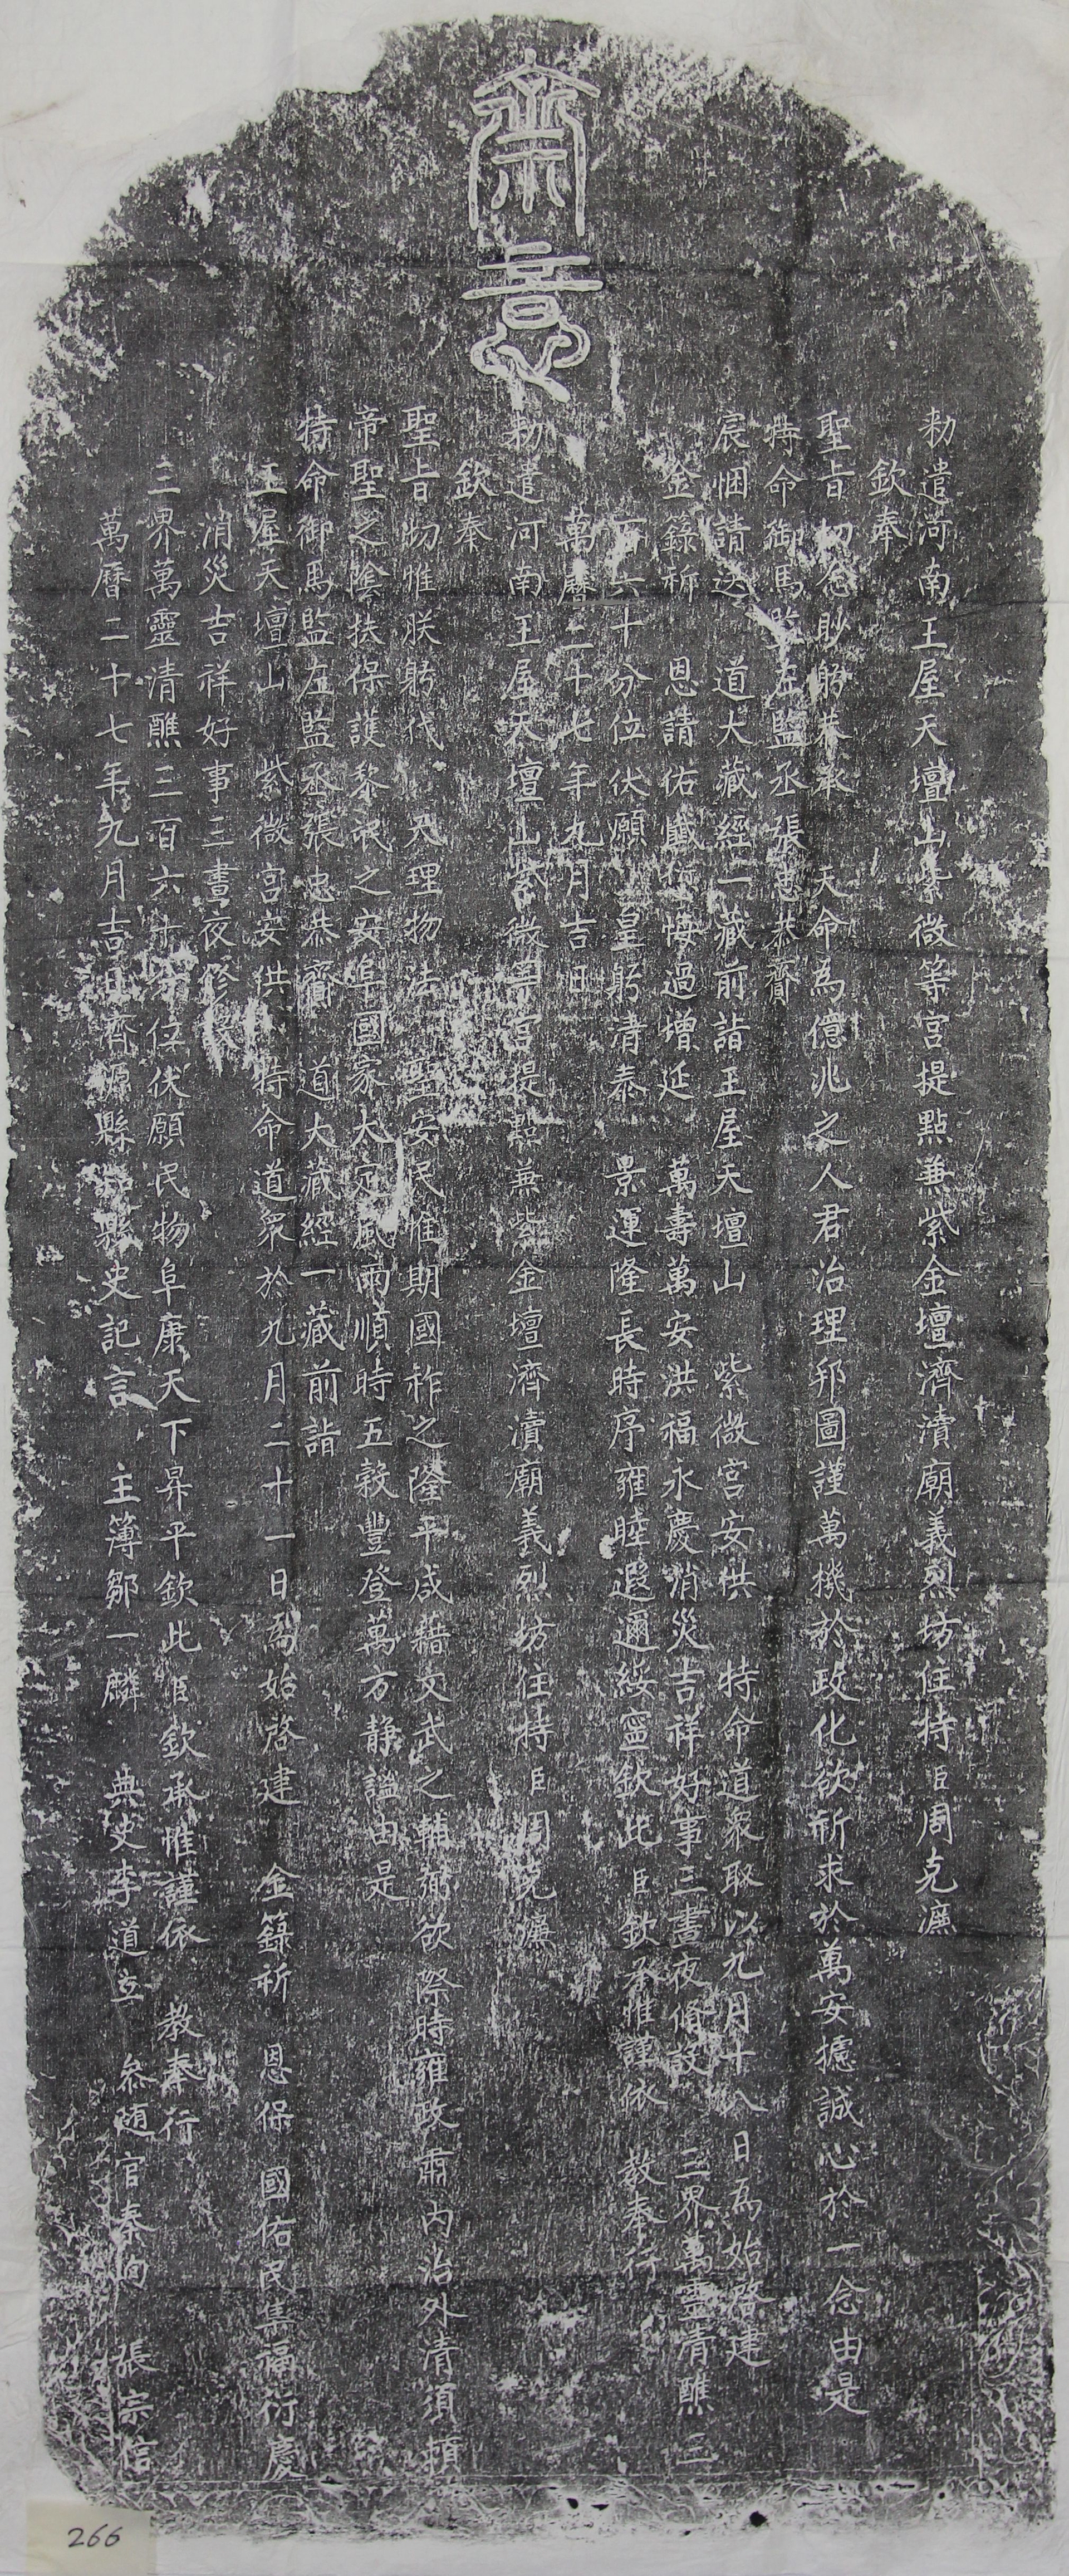 齋意
勑遣河南王屋天壇山紫微等宮提點兼紫金壇濟瀆廟義烈坊住持臣周克濂
欽奉
聖旨切念眇躬恭承　天命為億兆之人君治理邦圖謹萬機於政化欲祈求於萬安攄誠心於一念由是
特命御馬監左監丞張忠恭齎
宸悃請送　道大藏經一藏前詣王屋天壇山　紫微宮安供　特命道眾取以九月十八日為始啓建
金籙祈　恩請佑讖悔過增延　萬壽萬安洪福永慶消災吉祥好事三晝夜脩設　三界萬靈清醮三
百六十分位伏願　皇躬清泰　景運隆長時序雍睦遐邇綏寧欽此臣欽承惟謹依　教奉行
萬曆二十七年九月吉日
勑遣河南王屋天壇山紫微等宮提點兼紫金壇濟瀆廟義烈坊住持臣周克濂
欽奉
聖旨切惟朕躬代　天理物法　聖安民惟期國祚之隆平咸藉文武之輔弼欲際時雍政肅內治外清須頼
帝聖之陰扶保護黎民之安阜國家大定風雨順時五穀豐登萬方靜謐由是
特命御馬監左監丞張忠恭齎　道大藏經一藏前詣
王屋天壇山　紫微宮安供　特命道眾於九月二十一日為始啓建　金籙祈　恩保　國佑民集福衍慶
消災吉祥好事三晝夜修設
三界萬靈清醮三百六十分位伏願民物阜康天下昇平欽此臣欽承惟謹依　教奉行
萬曆二十七年九月吉日濟源縣知縣史記言　主簿鄒一麟　典史李道立　參随官秦洵　張宗信
266